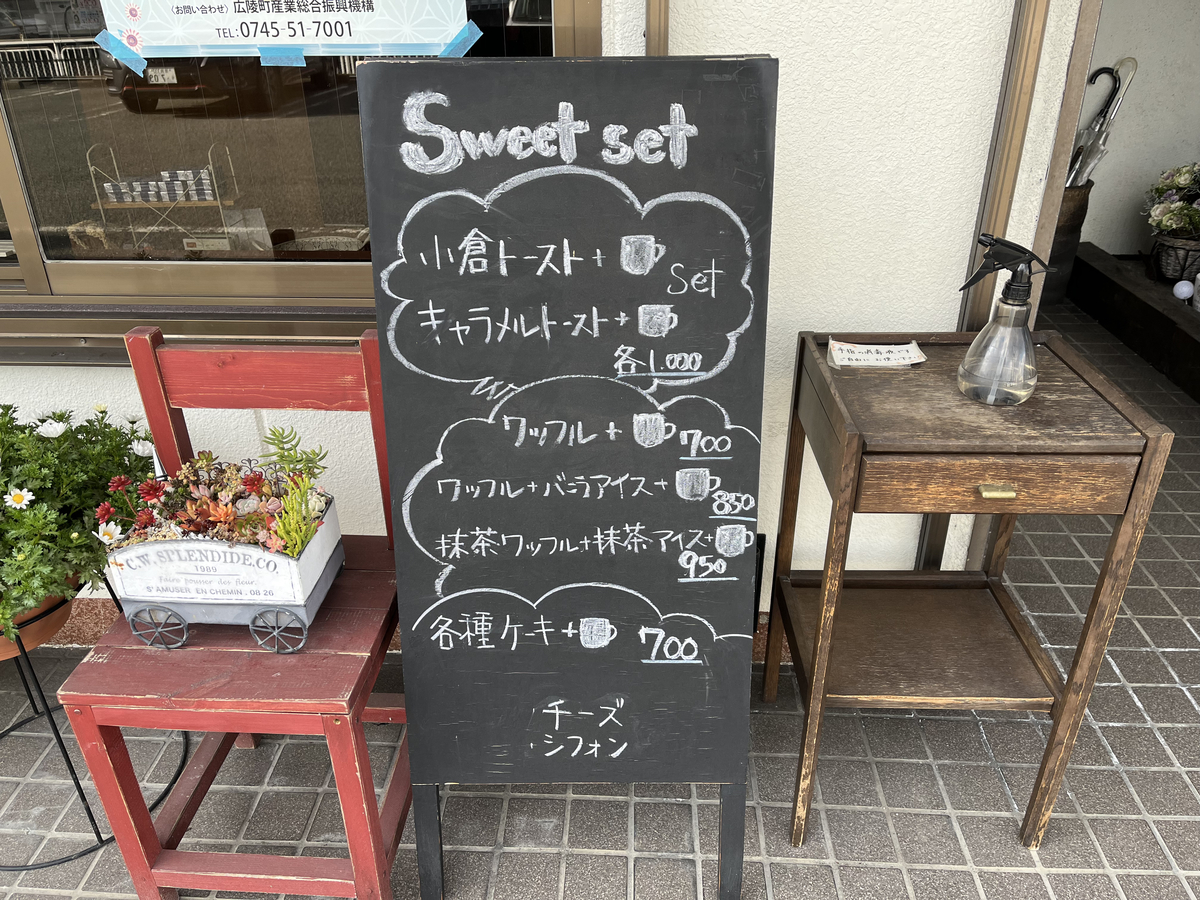 〈お問い合わせ〉広陵町産業総合振興機構
TEL:0745-51-7001
Sweet set
小倉トースト+
set
キャラメルトースト+
各1.000
ワッフル+ 700
ワッフル+バニラアイス+
850
抹茶ワッフル+抹茶アイス+
950
各種ケーキ+ 700
・チーズ
・シフォン
C.W.SPLENDIDE.CO.
1989
Faire pousser des fleur.
S'AMUSER EN CHEMIN. 08 26